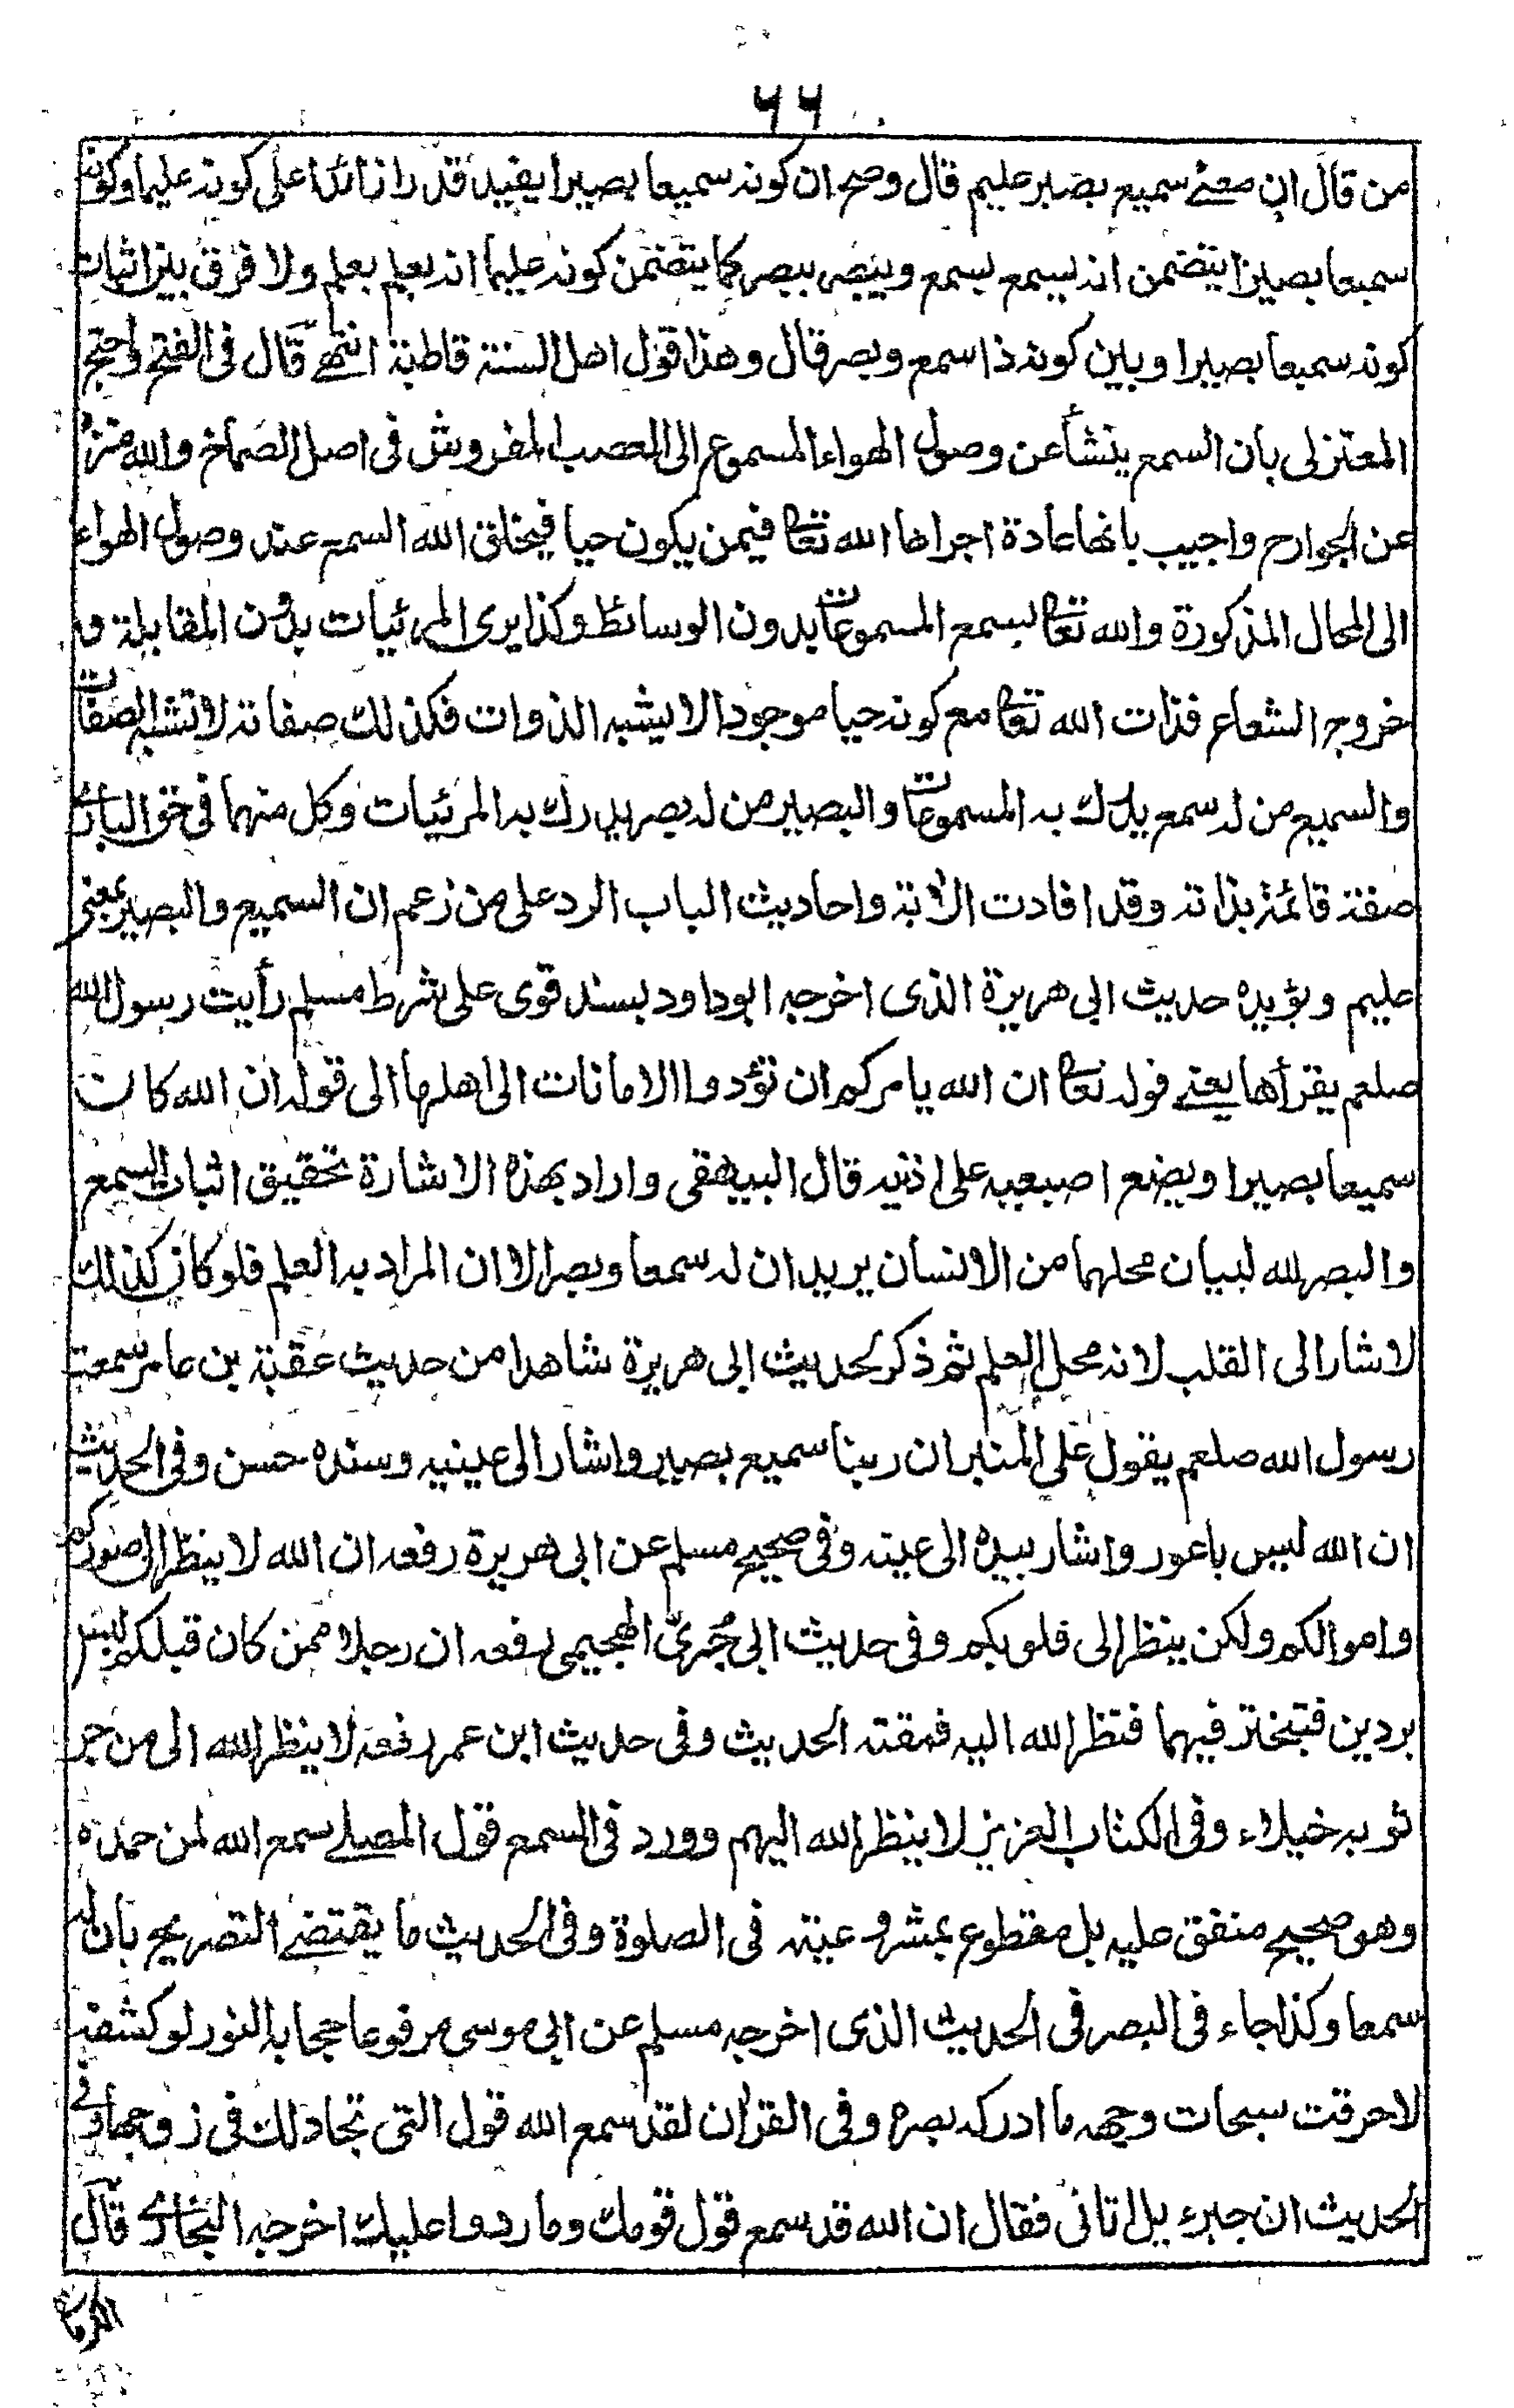 ٦٦
من قال ان معنے سميع بصير عليم قال وصح ان كونه سميعا بصيرا يفيد قدرا زائدا على كونه عليما وكونه
سميعا بصيرا يتضمن انه يسمع بسمع ويبصر ببصر كما يتضمن كونه عليما انه يعلم بعلم ولا فرق بين اثبات
كونه سميعا بصيرا وبين كونه ذا سمع وبصر قال وهذا قول اهل السنة قاطبة انتهے قال فى الفتح واحتج
المعتزلى بان السمع ينشأ عن وصول الهواء المسموع الى العصب المفروش فى اصل الصماخ والله منزه
عن الجوارح واجيب بانها عادة اجراها الله تعا فيمن يكون حيا فيخلق الله السمع عند وصول الهواء
الى المحال المذكورة والله تعا يسمع المسموعات بدون الوسائط وكذا يرى المرئيات بدون المقابلة و
خروج الشعاع فذات الله تعا مع كونه حيا موجودا لا يشبه الذوات فكذلك صفاته لا تشبه الصفات
والسميع من له سمع يدرك به المسموعات والبصير من له بصر يدرك به المرئيات وكل منهما فى حق البارئ
صفة قائمة بذاته وقد افادت الآية واحاديث الباب الرد على من زعم ان السميع والبصير بمعنى
عليم ويؤيده حديث ابى هريرة الذى اخرجه ابو داود بسند قوى على شرط مسلم رأيت رسول الله
صلعم يقرأها يعنے قوله تعا ان الله يامركم ان تؤدوا الامانات الى اهلها الى قوله ان الله كان
سميعا بصيرا ويضع اصبعيه على اذنيه قال البيهقى واراد بهذه الاشارة تحقيق اثبات السمع
والبصر لله لبيان محلهما من الانسان يريد ان له سمعا وبصرا لا ان المراد به العلم فلو كان كذلك
لاشار الى القلب لانه محل العلم ثم ذكر لحديث ابى هريرة شاهدا من حديث عقبة بن عامر سمعت
رسول الله صلعم يقول على المنبر ان ربنا سميع بصير واشار الى عينيه وسنده حسن وفى الحديث
ان الله ليس باعور واشار بيده الى عينه وفى صحيح مسلم عن ابى هريرة رفعه ان الله لا ينظر الى صوركم
واموالكم ولكن ينظر الى قلوبكم وفى حديث ابى جُرىّ الهجيمى رفعه ان رجلا ممن كان قبلكم لبس
بردين فتبختر فيهما فنظر الله اليه فمقته الحديث وفى حديث ابن عمر رفعه لا ينظر الله الى من جر
ثوبه خيلاء وفى الكتاب العزيز لا ينظر الله اليهم وورد فى السمع قول المصلے سمع الله لمن حمده
وهو صحيح متفق عليه بل مقطوع بمشروعيته فى الصلوة وفى الحديث ما يقتضے التصريح بان له
سمعا وكذا جاء فى البصر فى الحديث الذى اخرجه مسلم عن ابى موسى مرفوعا حجابه النور لو كشفه
لاحرقت سبحات وجهه ما ادركه بصره وفى القران لقد سمع الله قول التى تجادلك فى زوجها وفے
الحديث ان جبرءيل اتانى فقال ان الله قد سمع قول قومك وما ردوا عليك اخرجه البخارى قال